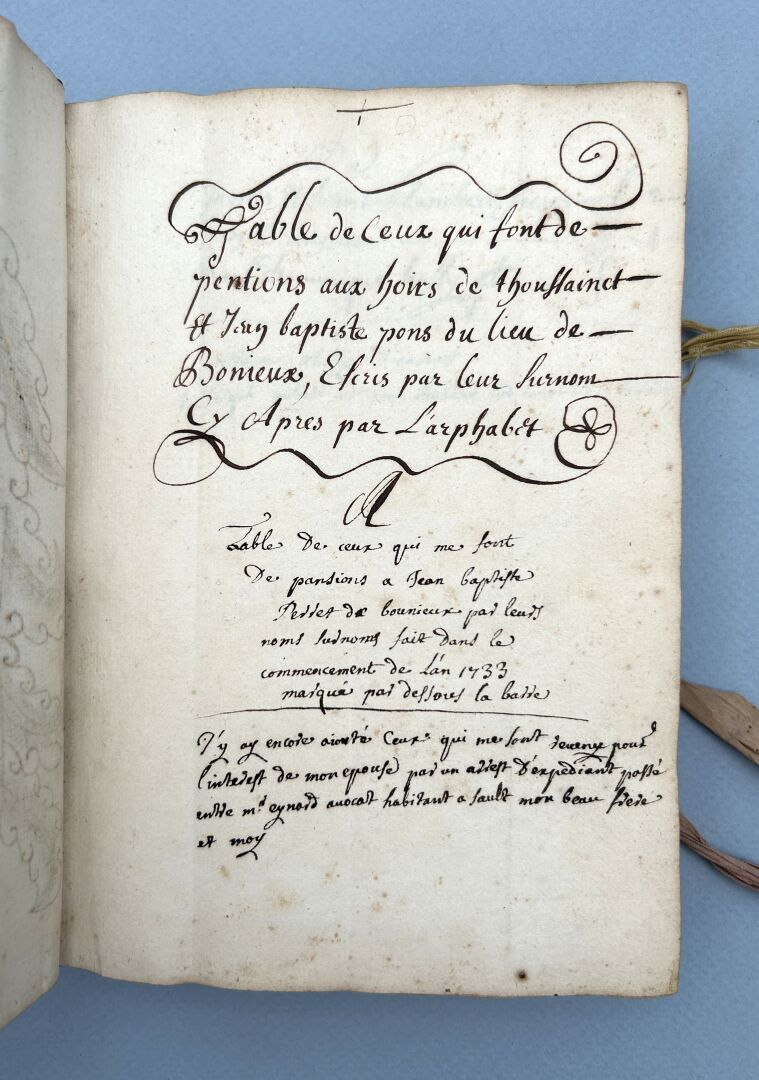 Table de Ceux qui font de
pentions aux hoirs de thoussainct
Et Jean baptiste pons du lieu de
Bonieux, Escris par leur surnom
Cy Apres par L'arphabet
A
Table De ceux qui me font
De pansions a Jean baptiste
Perret de bounieux par leurs
noms surnoms fait dans le
commencement de L'an 1733
marqué par dessous la barre
J'y ay encore aiouté Ceux qui me sont revenus pour
l'interest de mon epouse par un arrest D'expediant passé
entre mr eynard avocat habitant a sault mon beau frere
et moy